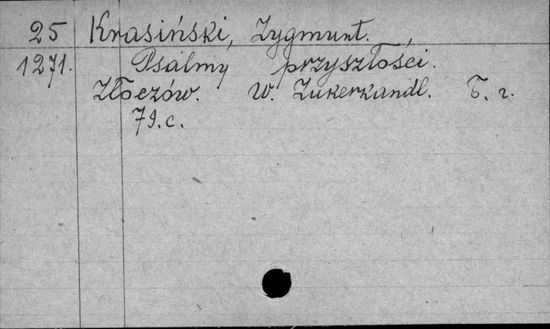 25 Krasiński, Zygmunt.
1271. Psalmy przyszłości.
Złoczów. W. Zukerkandl. Б. г.
79.c.